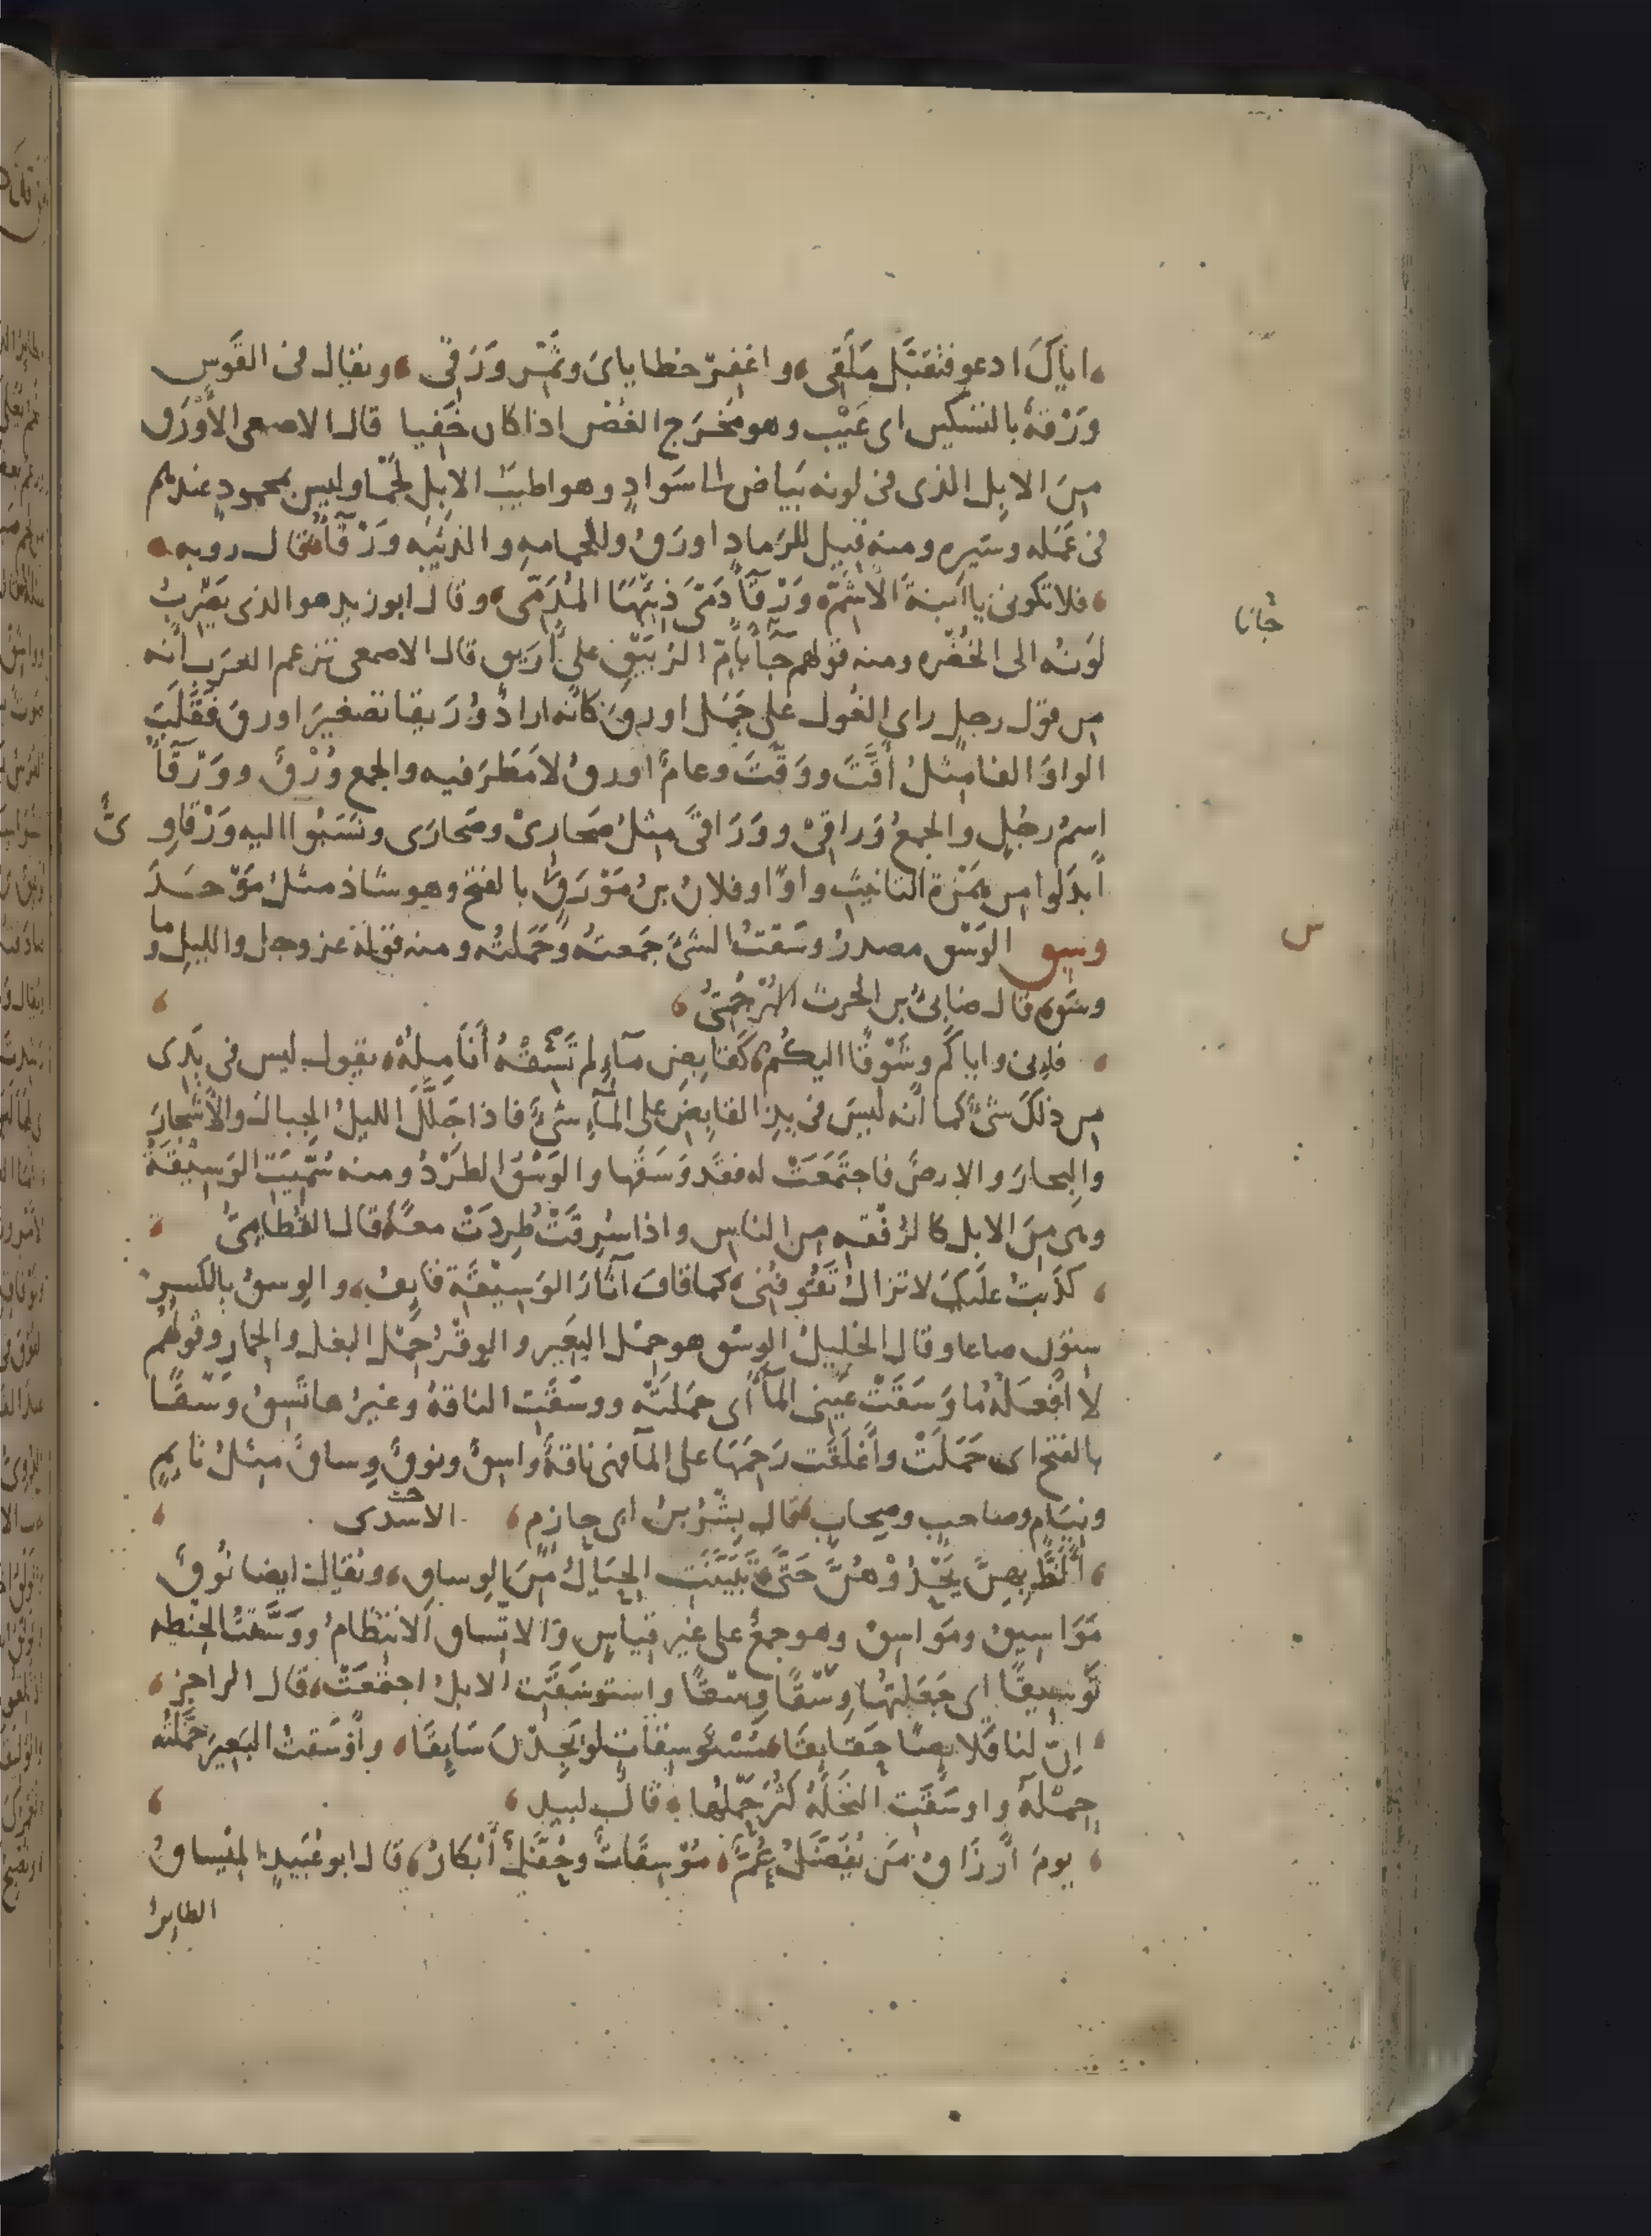 اياكَ ادعو فتقبَّل مَلَقى، واغفرْ خطاياىَ وثمّرْ وَرَقى، ويقال فى القَوسِ
وَرْقةٌ بالتسكين اى عَيْب وهو مَخْرَج الغصْن اذا كان خَفِيا قال الاصمعى الأوْرَق
مِنَ الابِل الذى فى لونه بَيَاض الى سَوادٍ وهو اطيبُ الابِل لَحْمًا وليس بمحمودٍ عندهم
فى عَمَله وسَيره ومنه قيل للرَمادِ اورَقُ وللحمامةِ والذئبَه وَرْقآءُ قال روبه
فلا تكونى يا ابنةَ الأشَمّ، وَرْقآءَ دَمَّى ذِئبَها المُدَمِّى، وقال ابو زيد هو الذى يَضْربُ
لَونُه الى الخُضْره ومنه قولهم جآءَ بأمّ الرُبَيْقِ على أُرَيق قال الاصمعى تزعم العَرَب أنّه
من قول رجلٍ راى الغُول على جَمَل اورقَ كانّه اراد وُرَيقا تصغيرَ اورقَ فقَلَبَ
الواوَ الفا مِثلُ أقّتَت ووقّتَت وعامٌ اورقُ لا مَطَرَ فيه والجمع وُرْقٌ ووَرْقآءُ
اسمُ رجُلٍ والجمعُ وَراقِىْ ووَرَاقَى مِثلُ صَحارِىْ وصَحارَى ونَسَبُوا اليه وَرْقاوِىٌّ
أبدَلوا من همْزة التانيث واوًا وفلانُ بنُ مَوْرَقٍ بالفتح وهو شاذ مثلُ مَوْحَدَ
وسق الوَسْق مصدرُ وسَقتُ الشىَّ جَمعتهُ وحَملتُه ومنه قولهُ عز وجل والليل وما
وسَق قال ضابئُ بن الحرث البُرْجُمىُّ
فانى واياكم وشَوْقًا اليكُم، كقابِضِ مآءٍ لم تَسِقْهُ أنَامِلُهْ، يقول ليس فى يَدى
من ذلكَ شىءٌ كما أنّه لَيسَ فى يدِ القابِضِ على المآءِ شىءٌ فاذا جَلَّلَ الليلُ الجِبالَ والأشجارَ
والبِحارَ والارضَ فاجتَمَعَتْ له فقد وَسَقَها والوَسْقُ الطَرْدُ ومنه سُمّيَتِ الوَسِيْقَةُ
وهى مِنَ الابل كالرُفْقةِ من الناس واذا سُرِقَتْ طُرِدَتْ معًا قال القُطامِىُّ
كذَبتُ عليكَ لا تزالُ تَقُوفُنِى، كما قافَ آثارَ الوَسِيْقَةِ قايِفُ، والوِسقُ بالكَسرِ
ستون صاعا وقال الخليلُ الوِسْق هو حِمْل البَعير والوِقْرُ حِمْل البغل والحمار وقولُهُم
لا افْعَلُهُ ما وَسَقَتْ عَينى المآءَ اى حَمَلَتْهُ ووسَقَتِ الناقةُ وغيرُها تَسِقُ وَسْقًا
بالفتح اى حَمَلَتْ وأَغلَقَت رَحِمَها على المآءِ فهى ناقةٌ واسِقٌ ونوقٌ وِساقٌ مِثلُ نايِمٍ
ونِيَامٍ وصاحبٍ وصِحابٍ قال بِشْرُ بنُ ابى حازم الاسدى
أَلَظَّ بهِنَّ يَحْدُوْهُنَّ حَتَّى، تَبَيَّنَتِ الحِيَالُ مِنَ الوِساقِ، ويُقال ايضا نُوقٌ
مَوَاسِيقُ ومَوَاسِقُ وهو جمعٌ على غيرِ قياسٍ والاتّساق الانتظامُ ووَسَّقتُ الحِنْطه
تَوسِيقًا اى جَعَلتُها وِسْقًا وِسْقًا واستوسَقَتِ الابلُ اجتمَعَتْ، قال الراجز
اِنّ لنا قَلايصًا حَقايقَا، مُسْتَوسِقاتٍ لو يَجِدْنَ سَايِقَا، وأَوْسَقتُ البَعيرَ حَمَّلْتُه
حِمْلَهُ واوسَقَتِ النَخلَةُ كَثُرَ حَمْلُها، قال لبيد
يومَ أَرزَاقُ مَن يُفَضَّلُ عُمٌّ، مُوسِقَاتٌ وحُفَّلٌ أَبْكارُ، قال ابو عُبَيدٍ المِيْساقُ
الطايرُ
جُانا
س